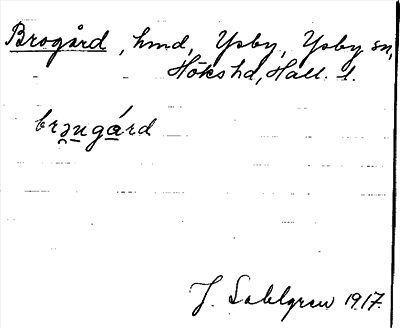 Brogård, hmd, Ysby, Ysby sn,
Hökshd, Hall. l.
brəngård
J. Sahlgren 1917.